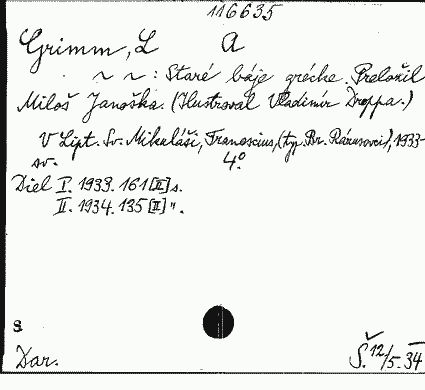 116635
Grimm, L A
~ ~ : Staré báje grécke. Preložil
Miloš Janoška. (Ilustroval Vladimír Droppa.)
V Lipt. Sv. Mikuláši, Tranoscius, (typ. Br. Rázusovci), 1933-
sv. 4°.
Diel I. 1933. 161 [II] s.
II. 1934. 135 [II] ".
8
Dar. Š. 12/5. 34